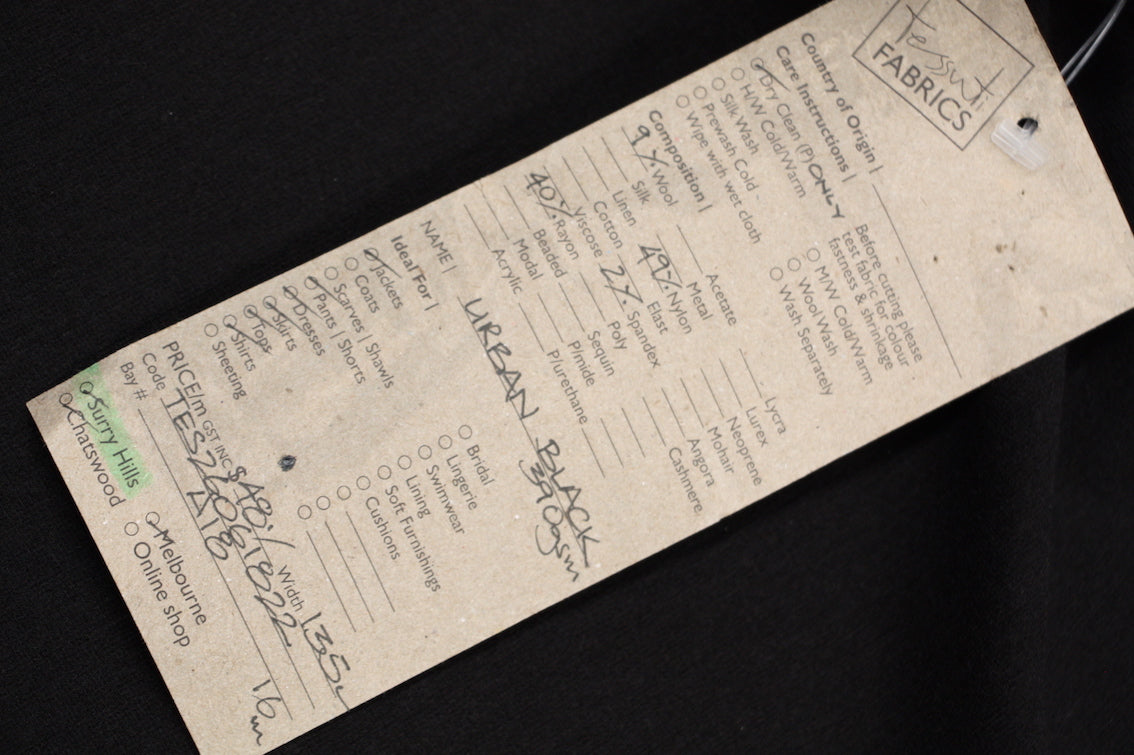 tessuti
FABRICS
Country of Origin |
Care Instructions |
Dry Clean (P) ONLY
H/W Cold/Warm
Silk Wash
Prewash Cold
Wipe with wet cloth
Before cutting please
test fabric for colour
fastness & shrinkage
M/W Cold/Warm
Wool Wash
Wash Separately
Composition |
9% Wool
Silk
Linen
Cotton
Viscose
40% Rayon
Beaded
Modal
Acrylic
Acetate
Metal
49% Nylon
Elast
2% Spandex
Poly
Sequin
P/mide
P/urethane
Lycra
Lurex
Neoprene
Mohair
Angora
Cashmere
NAME | URBAN BLACK
390gsm
Ideal For |
Jackets
Coats
Scarves | Shawls
Pants | Shorts
Dresses
Skirts
Tops
Shirts
Sheeting
Bridal
Lingerie
Swimwear
Lining
Soft Furnishings
Cushions
PRICE/m GST INC $48·/ Width 135c
Code TES22061822
Bay # A18 16m
Surry Hills
Chatswood
Melbourne
Online shop